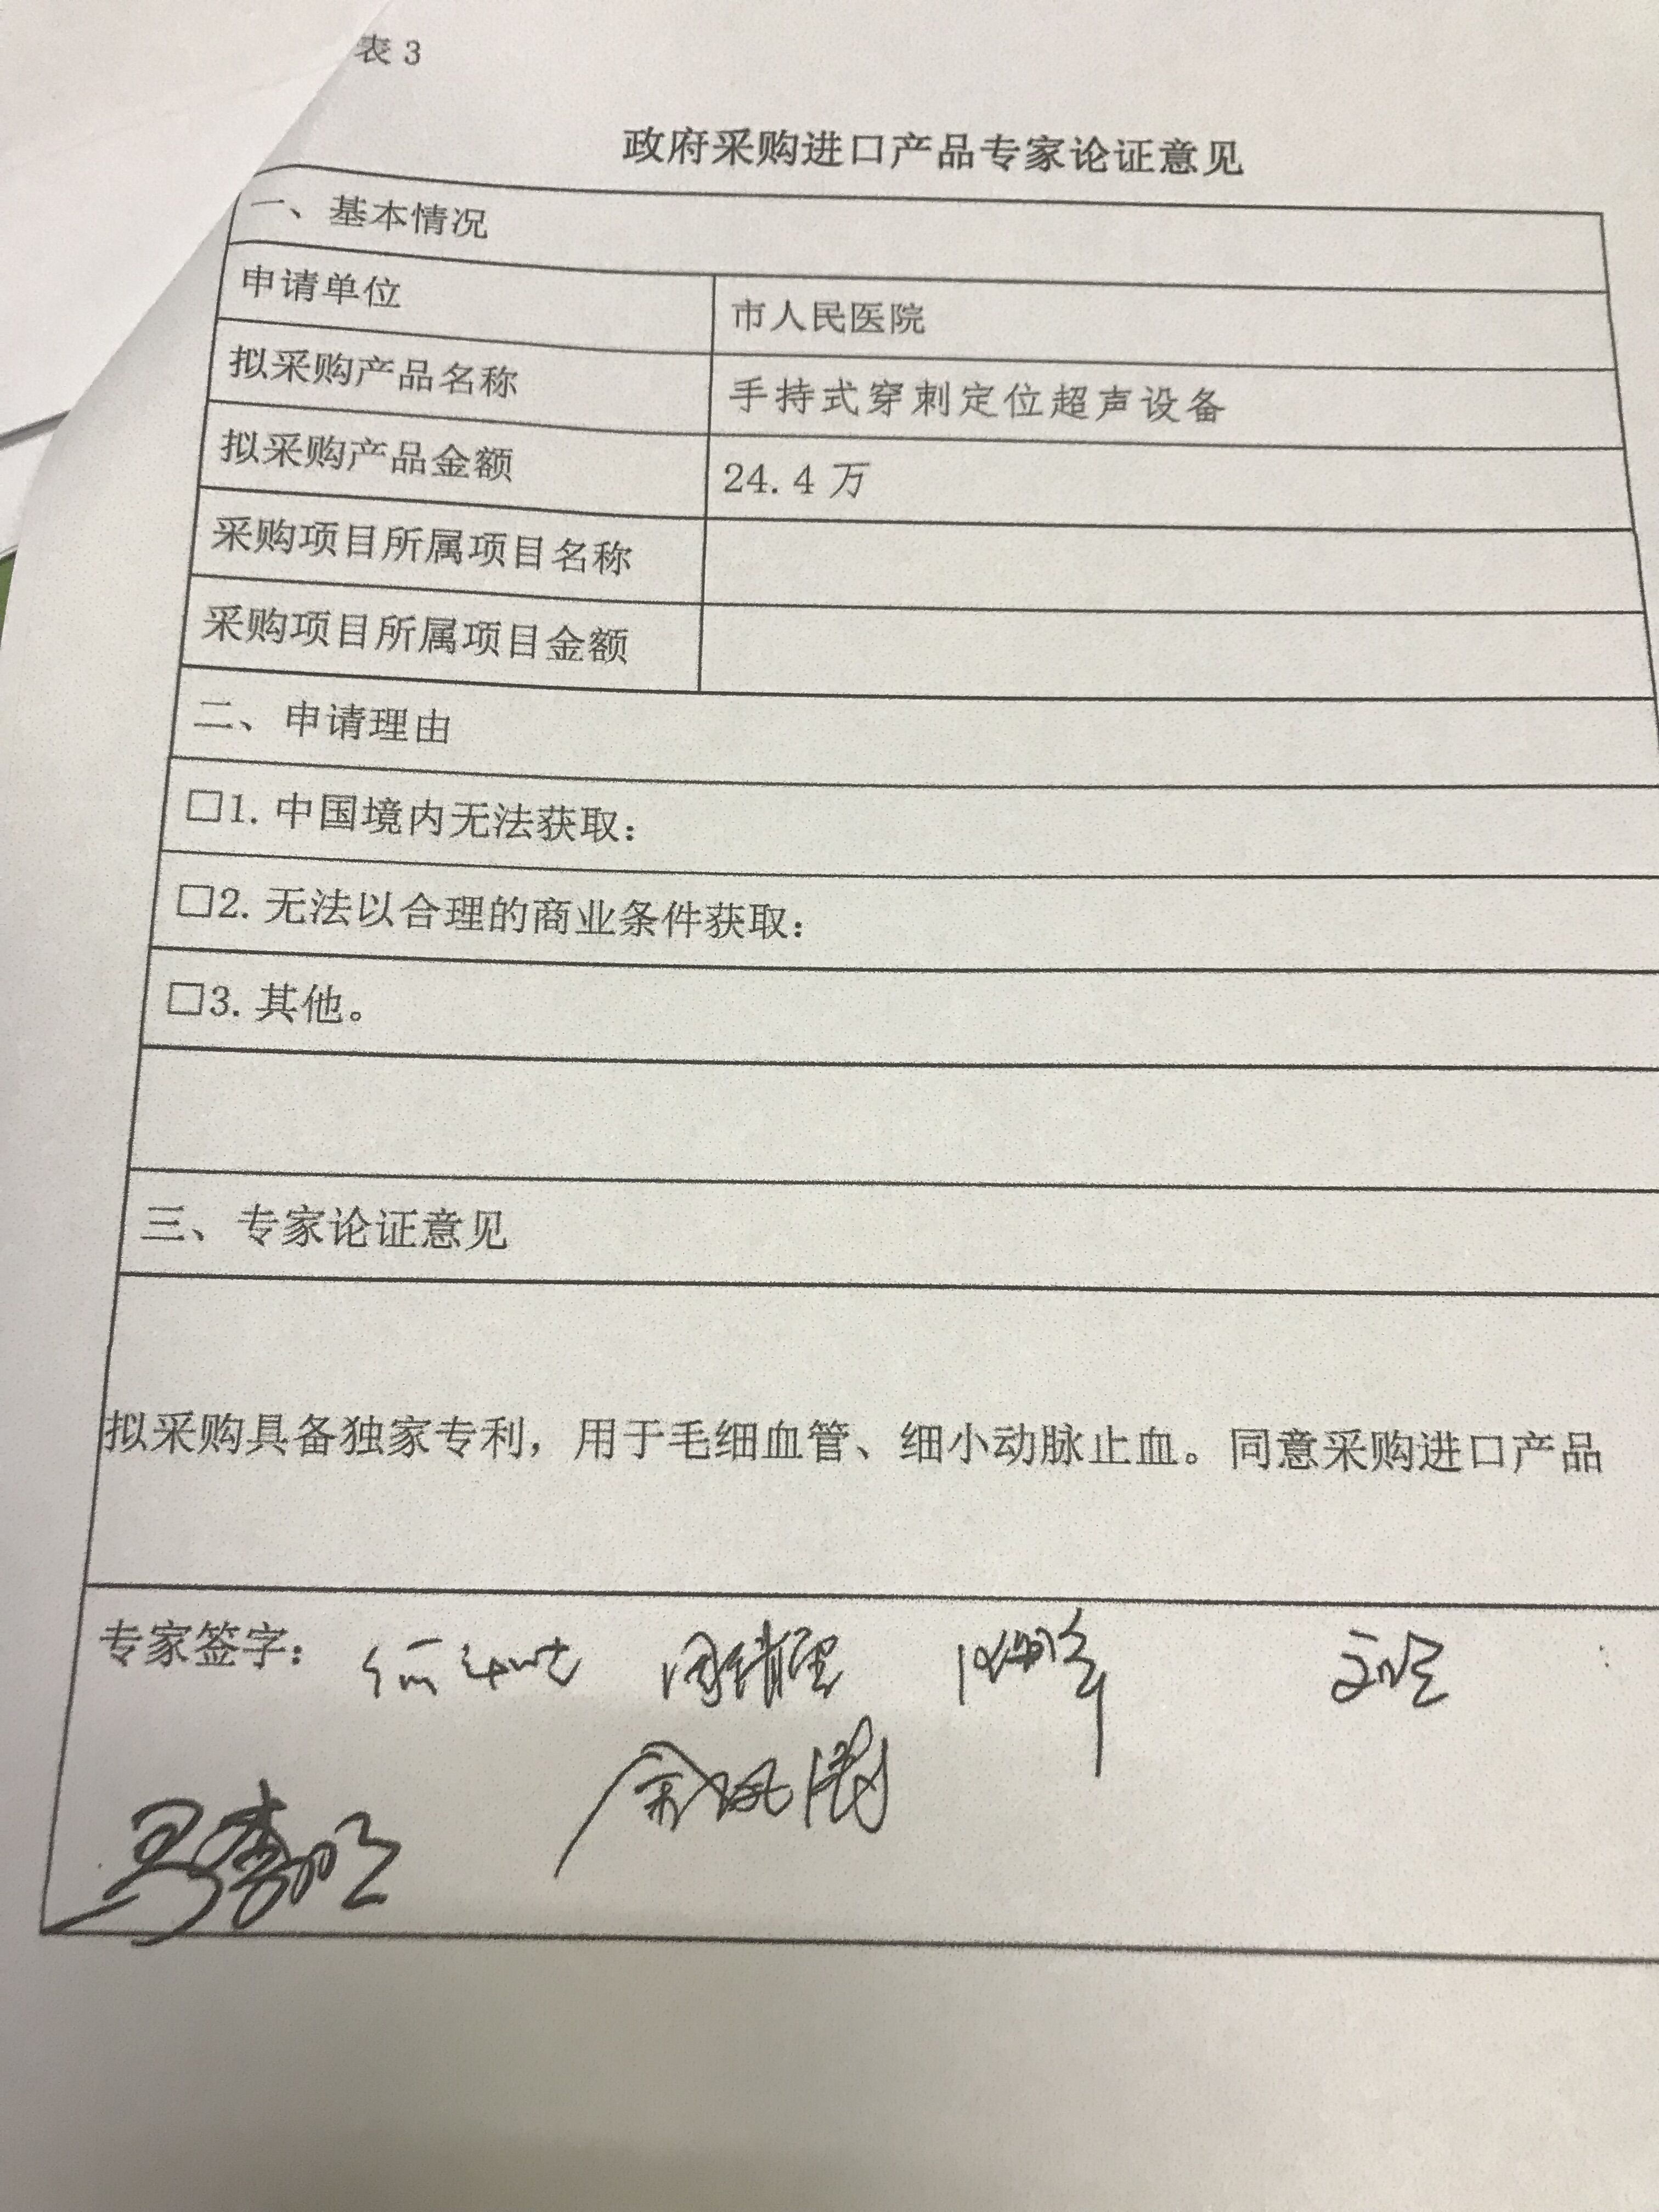 表 3
政府采购进口产品专家论证意见
一、基本情况
申请单位 市人民医院
拟采购产品名称 手持式穿刺定位超声设备
拟采购产品金额 24.4 万
采购项目所属项目名称
采购项目所属项目金额
二、申请理由
□1. 中国境内无法获取：
□2. 无法以合理的商业条件获取：
□3. 其他。
三、专家论证意见
拟采购具备独家专利，用于毛细血管、细小动脉止血。同意采购进口产品
专家签字：